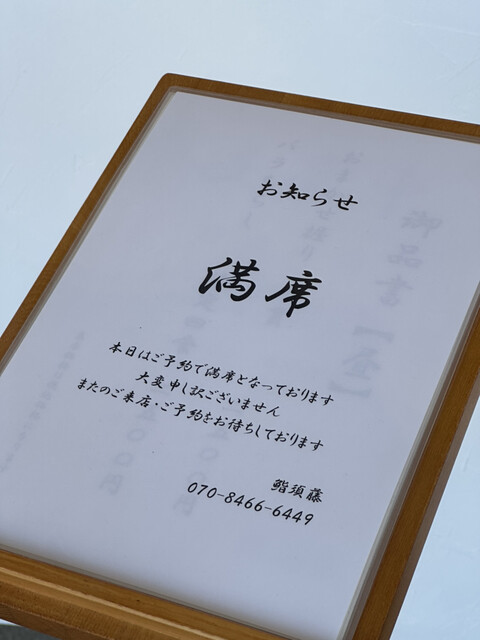 お知らせ
満席
本日はご予約で満席となっております
大変申し訳ございません
またのご来店・ご予約をお待ちしております
鮨須藤
070-8466-6449
御品書【昼】